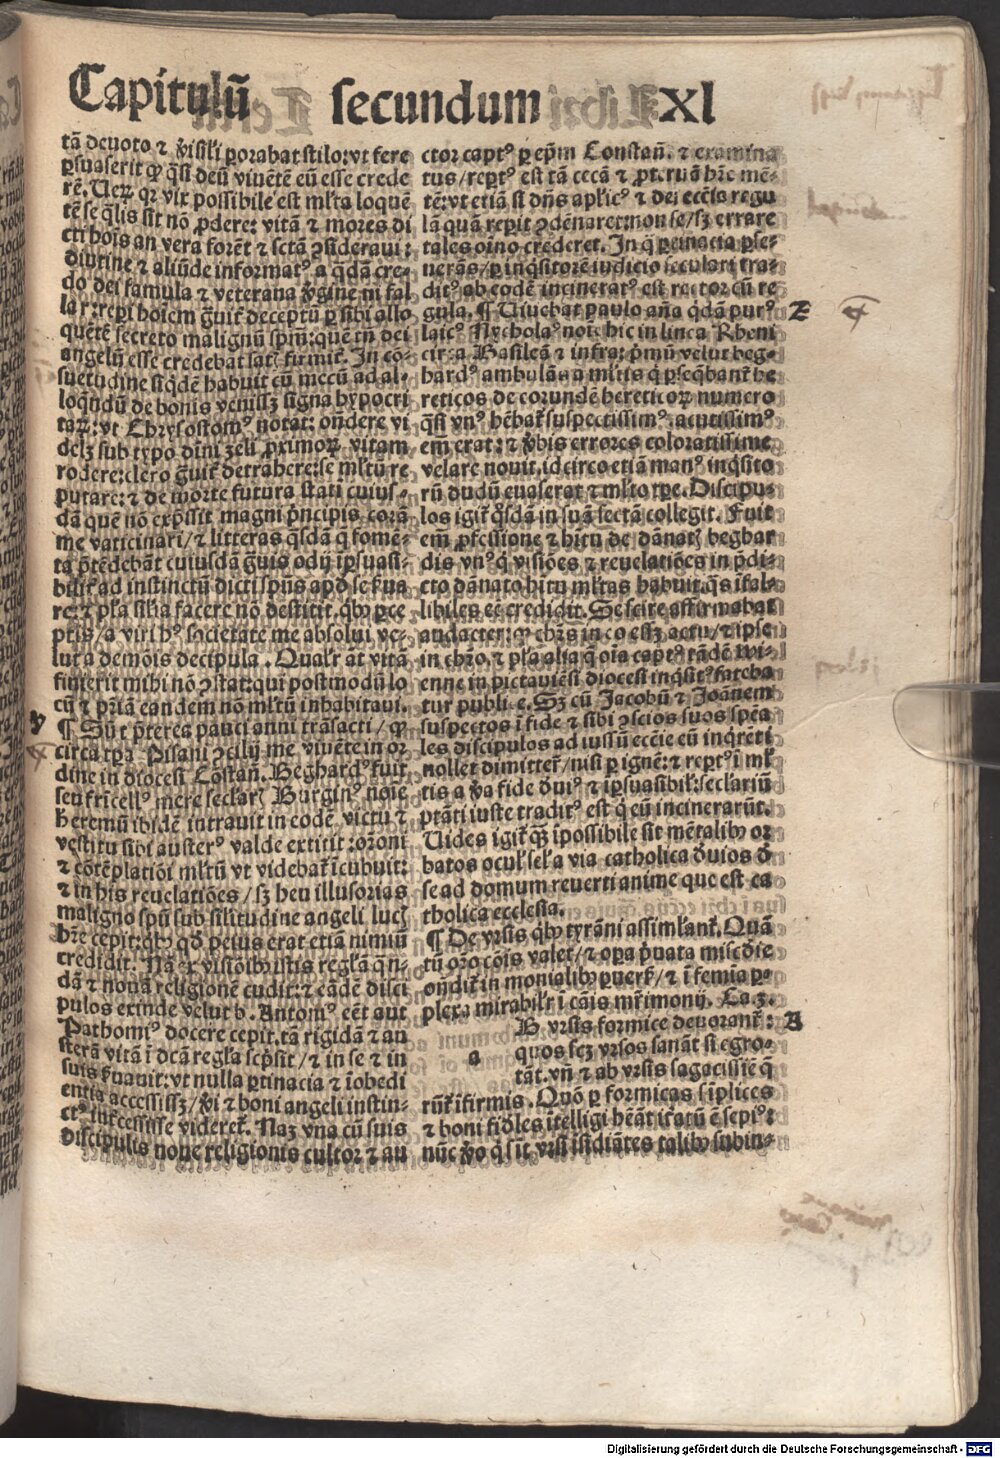 Capitulū secundum XL
tā deuoto ⁊ v̄isili ꝑorabat stilo: vt fere
ꝑsuaserit ꝙ q̄si deū viuētē eū esse crede
rē. Uerꝝ qꝛ vix possibile est ml̄ta loquē
tē se q̄lis sit nō ꝓdere: vitā ⁊ mores di
cti hoīs an vera forēt ⁊ sctā ꝯsideraui:
diutine ⁊ aliūde informatꝰ a q̄dā cre-
do dei famula ⁊ veterana v̄gine ni fal
lar: reꝑi hoīem ḡuit̄ deceptū ꝑ sibi allo
quētē secreto malignū sp̄m: quē tn̄ dei
angelū esse credebat satꝭ firmit̄. In cō-
suetudine siq̄dē habuit cū mecū ad al-
loq̄ndū de bonis venissꝫ signa hypocri
taꝝ: vt Chrysostomꝰ notat: ondere vi
delꝫ sub typo dīni zeli ꝓximoꝝ vitam
rodere: clero ḡuit̄ detrahere: se ml̄tū re
putare: ⁊ de morte futura stati cuius-
dā quē nō exp̄ssit magni p̄ncipis corā
me vaticinari/ ⁊ litteras q̄sdā q̄ fome-
ta p̄tēdebāt cuiusdā ḡuis odij īpsuasi-
bilit̄ ad instinctū dicti spūs apd̄ se fixus
re: ⁊ pl̄a sil̄ia facere nō destitit. q̄bꝰ ꝑce
ptis/ a viri hꝰ societate me absolui ve-
lut a demōis decipula. Qualr̄ at vitā
finierit mihi nō ꝯstat: quī postmodū lo
cū ⁊ pr̄iā eandem nō ml̄tū inhabitaui.
¶ Sūt p̄terea pauci anni trāsacti/ ꝙ
circa tꝑa Pisani ꝯcilij me viuēte in or
dine in diocesi Cōstan̄. Beghardꝰ fuit
seu fr̄icellꝰ mere seclarꝭ Burginꝰ noīe
heremū ibidē intrauit in eodē victu ⁊
vestitu sibi austerꝰ valde extitit: orōni
⁊ cōtēplatiōi ml̄tū vt videbat̄ īcubuit:
⁊ in his reuelatiōes/ sꝫ heu illusorias
maligno spū sub sil̄itudine angeli lucꝭ
hr̄e cepit: q̄bꝰ qd̄ peius erat etiā nimiū
credidit. Nā ex visiōibꝰ istis regl̄ā q̄n-
dā ⁊ nouā religionē cudit: ⁊ eādē disci
pulos exinde velut b. Antoniꝰ eēt aut
Pathomiꝰ docere cepit. tā rigidā ⁊ au
sterā vitā ī dcā regl̄a scp̄sit/ ⁊ in se ⁊ in
suis s̄uauit: vt nulla ꝑtinacia ⁊ īobedi
entia accessissꝫ/ v̄i ⁊ boni angeli instin-
ctꝰ int̄cessisse videret̄. Naꝫ vna cū suis
discipulis noue religionis cultor ⁊ au
ctor captꝰ ꝑ ep̄m Constan̄. ⁊ examina
tus/ reꝑtꝰ est tā cecā ⁊ ꝓteruā hr̄e mē-
tē: vt etiā si dn̄s aplicꝰ ⁊ dei eccīs regu
lā quā reꝑit ꝯdēnaret: non se/ sꝫ errare
tales oīno crederet. In q̄ ꝑtinacia ꝑse-
uerās/ ꝑ inq̄sitorē iudicio seculari tra-
ditꝰ ab eodē incineratꝰ est rector cū re
gula. ¶ Uiuebat paulo añ q̄dā purꝰ
laicꝰ Nycholaꝰ noīe hic in linea Rheni
circa Basileā ⁊ infra: p̄mū velut beg-
hardꝰ ambulās a ml̄tis q̄ ꝑseq̄bant̄ he
reticos de eorundē hereticoꝝ numero
q̄si vnꝰ hēbat̄ suspectissimꝰ. acutissimꝰ
em̄ erat: ⁊ v̄bis errores coloratissime
velare nouit. idcirco etiā manꝰ inq̄sito
rū dudū euaserat ⁊ ml̄to tꝑe. Discipu-
los igit̄ q̄sdā in suā sectā collegit. Fuit
em̄ ꝓfessione ⁊ hītu de dānatꝭ beghar
dis vnꝰ q̄ visiōes ⁊ reuelatiōes in p̄di-
cto dānato hītu ml̄tas habuit. q̄s īfal-
libiles eē credidit. Se scire affirmabat
audacter: ꝙ chr̄s in eo essꝫ actu/ ⁊ ipse
in chr̄o. ⁊ pl̄a alia q̄ oīa captꝰ tādē Wi-
enne in pictauiēsi diocesi inq̄sitꝰ fateba
tur publice. Sꝫ cū Jacobū ⁊ Joānem
suspectos ī fide ⁊ sibi ꝯscios suos spēa
les discipulos ad iussū eccīe eū inq̄reti
nollet dimitter̄/ nisi ꝑ ignē: ⁊ reꝑtꝰ ī ml̄
tis a v̄a fide deuiꝰ ⁊ īpsuasibil̄: seclariū
ptāti iuste traditꝰ est q̄ eū incinerarūt.
Uides igit̄ qꝫ īpossibile sit mētalibꝰ or
batos ocul̄ sel̄a via catholica d̄uios d̄
se ad domum reuerti anime que est ca
tholica ecclesia.
¶ De vrsis q̄bꝰ tyrāni assimlant̄. Quā
tū or̄o cōis valet/ ⁊ oꝑa p̄uata misc̄die
ondit̄ in monialibꝰ ꝑuers̄/ ⁊ ī femīa ꝑ
plexa mirabilr̄ ī cāis mr̄imonij. Ca.3.
a
B vrsis formice deuorant̄: A
quos scꝫ vrsos sanāt si egro-
tāt. vn̄ ⁊ ab vrsis sagacissīe q̄
rūt̄ īfirmis. Quō ꝑ formicas sīplices
⁊ boni fid̄les ītelligi hēāt tr̄atū ē sepiꝰ:
nūc v̄o q̄ sit vrsi īsidiātes talibꝰ subin-
y
Z
Digitalisierung gefördert durch die Deutsche Forschungsgemeinschaft - DFG